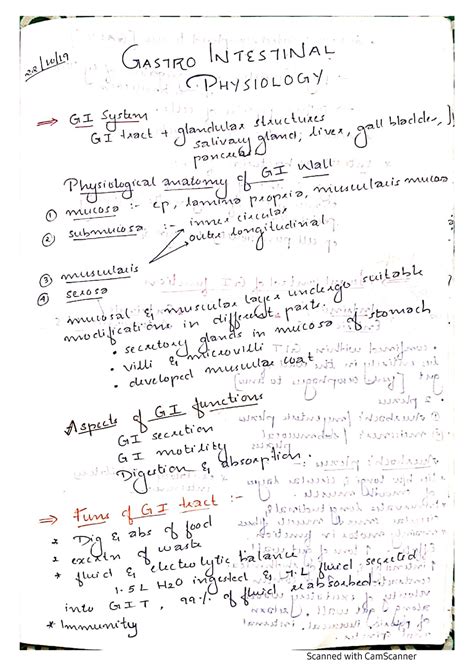 22/10/19
GASTRO INTESTINAL
PHYSIOLOGY
⇒ GI System
GI tract + glandular structures
salivary gland, liver, gall bladder,
pancreas
Physiological anatomy of GI Wall
① mucosa :- ep, lamina propria, muscularis mucosa
② submucosa :- inner circular
outer longitudinal
③ muscularis
④ serosa
mucosal & muscular layer undergo suitable
modifications in different parts.
• secretory glands in mucosa of stomach
• villi & microvilli
• developed muscular coat
Aspects of GI functions
GI secretion
GI motility
Digestion & absorption.
⇒ Funs of GI tract :-
* Dig & abs of food
* excretn of waste
* fluid & electrolytic balance
1.5 L H2O ingested & 7 L fluid secreted
into GIT, 99% of fluid reabsorbed
* Immunity
Scanned with CamScanner